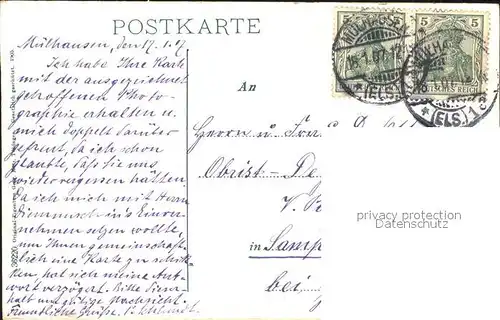 POSTKARTE
Mülhausen, den 17.1.07
Ich habe Ihre Karte
mit der ausgezeichnet
getroffenen Photo-
graphie erhalten u.
mich doppelt darüber
gefreut, da ich schon
glaubte, daß Sie uns
wiedervergessen hätten.
Da ich mich mit Herrn
ins Einver-
nehmen setzen wollte,
um Ihnen gemeinschaft-
lich eine Karte zu schik-
ken, hat sich meine Ant-
wort verzögert. Bitte dieser-
halb um gütige Nachsicht.
Freundliche Grüße.
An
Herrn u.
Obrist-
V.
in
bei
5
5
DEUTSCHES REICH
(ELS)
(ELS)
privacy protection
Datenschutz